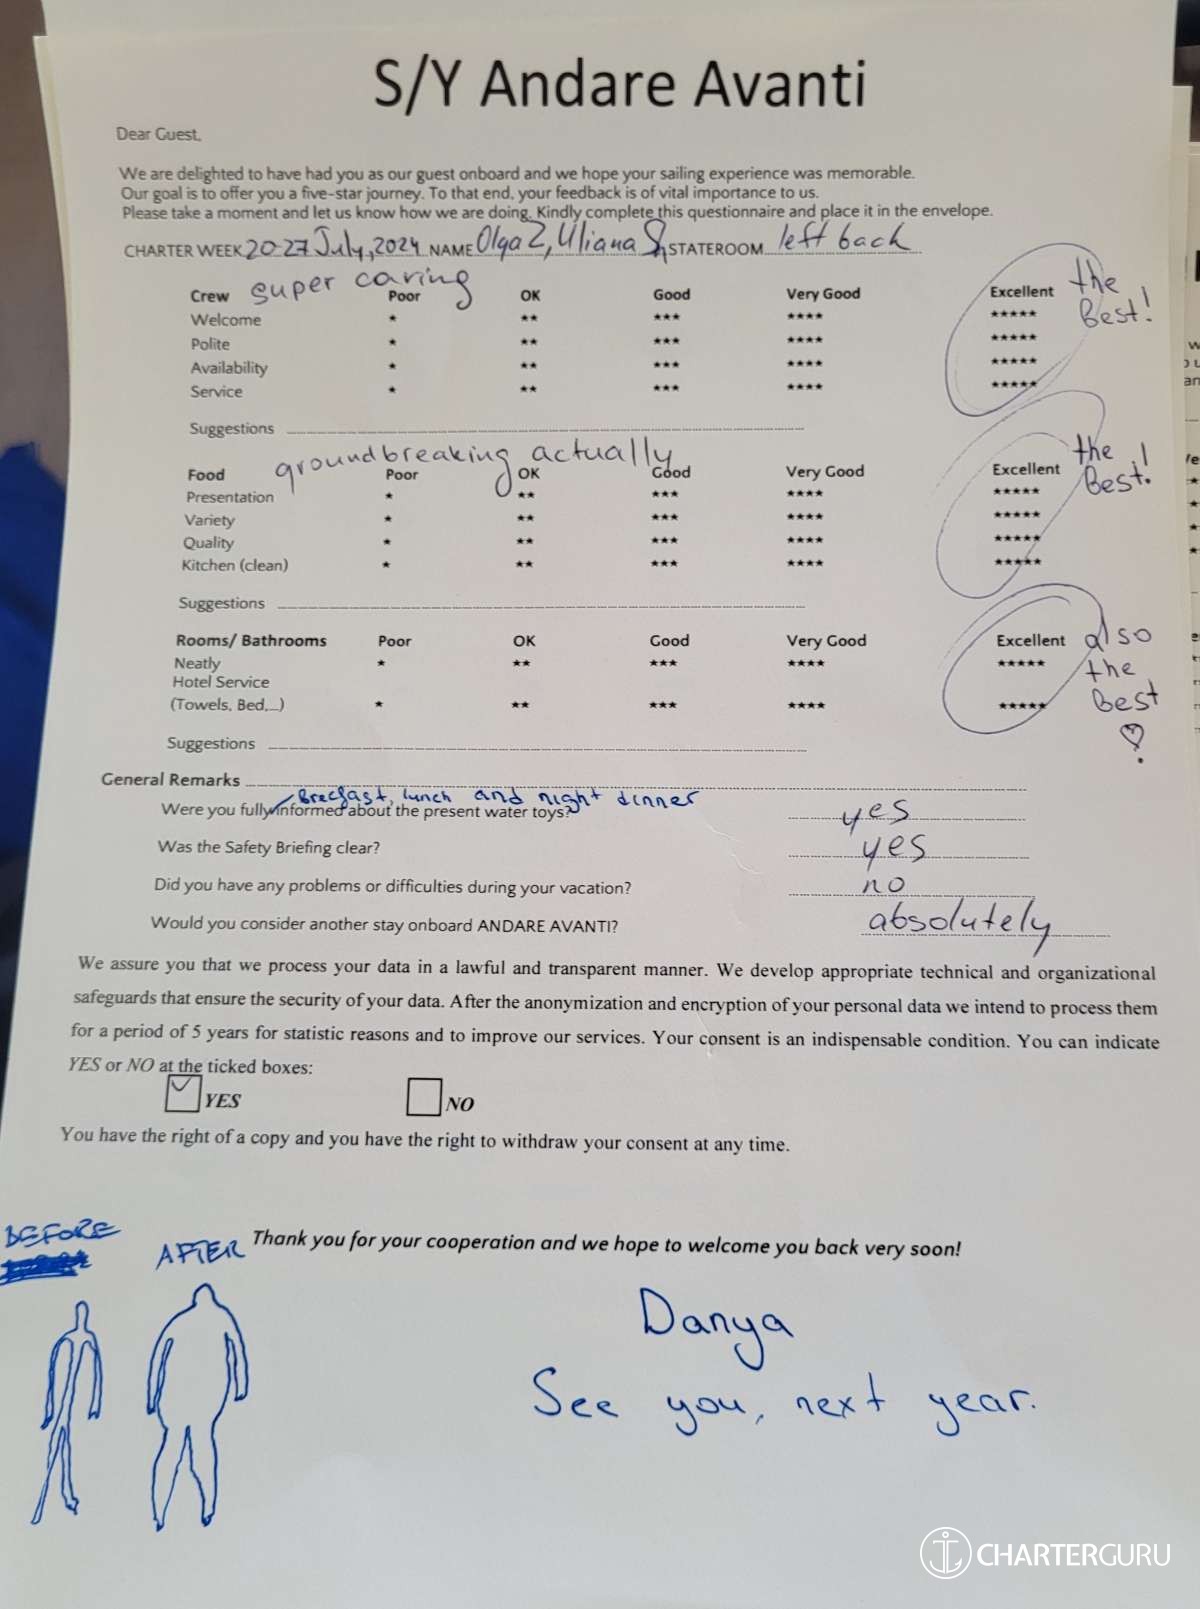 S/Y Andare Avanti
Dear Guest,
We are delighted to have had you as our guest onboard and we hope your sailing experience was memorable.
Our goal is to offer you a five-star journey. To that end, your feedback is of vital importance to us.
Please take a moment and let us know how we are doing. Kindly complete this questionnaire and place it in the envelope.
CHARTER WEEK 20-27 July, 2024 NAME Olga Z, Uliana STATEROOM left back
super caring
Crew Poor OK Good Very Good Excellent the Best!
Welcome * ** *** **** *****
Polite * ** *** **** *****
Availability * ** *** **** *****
Service * ** *** **** *****
Suggestions
groundbreaking actually
Food Poor OK Good Very Good Excellent the Best!
Presentation * ** *** **** *****
Variety * ** *** **** *****
Quality * ** *** **** *****
Kitchen (clean) * ** *** **** *****
Suggestions
Rooms/ Bathrooms Poor OK Good Very Good Excellent also
Neatly * ** *** **** ***** the
Hotel Service
(Towels, Bed,...) * ** *** **** ***** Best
Suggestions
General Remarks
Brecfast, lunch and night dinner
Were you fully informed about the present water toys? yes
Was the Safety Briefing clear? yes
Did you have any problems or difficulties during your vacation? no
Would you consider another stay onboard ANDARE AVANTI? absolutely
We assure you that we process your data in a lawful and transparent manner. We develop appropriate technical and organizational
safeguards that ensure the security of your data. After the anonymization and encryption of your personal data we intend to process them
for a period of 5 years for statistic reasons and to improve our services. Your consent is an indispensable condition. You can indicate
YES or NO at the ticked boxes:
YES NO
You have the right of a copy and you have the right to withdraw your consent at any time.
BEFORE
AFTER
Thank you for your cooperation and we hope to welcome you back very soon!
Danya
See you, next year.
CHARTERGURU